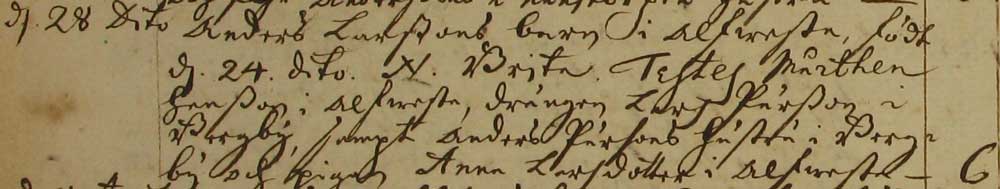 dj. 28 Dito Anders Larßons barn i Alfweste, födt
dj. 24. dito. N. Brita. Testes Mårthen
Henßon i Alfweste, drängen Lars Pärßon i
Bergby, sampt Anders Pärsons hustru i Berg-
by och pigan Anna Larsdotter i Alfweste — 6